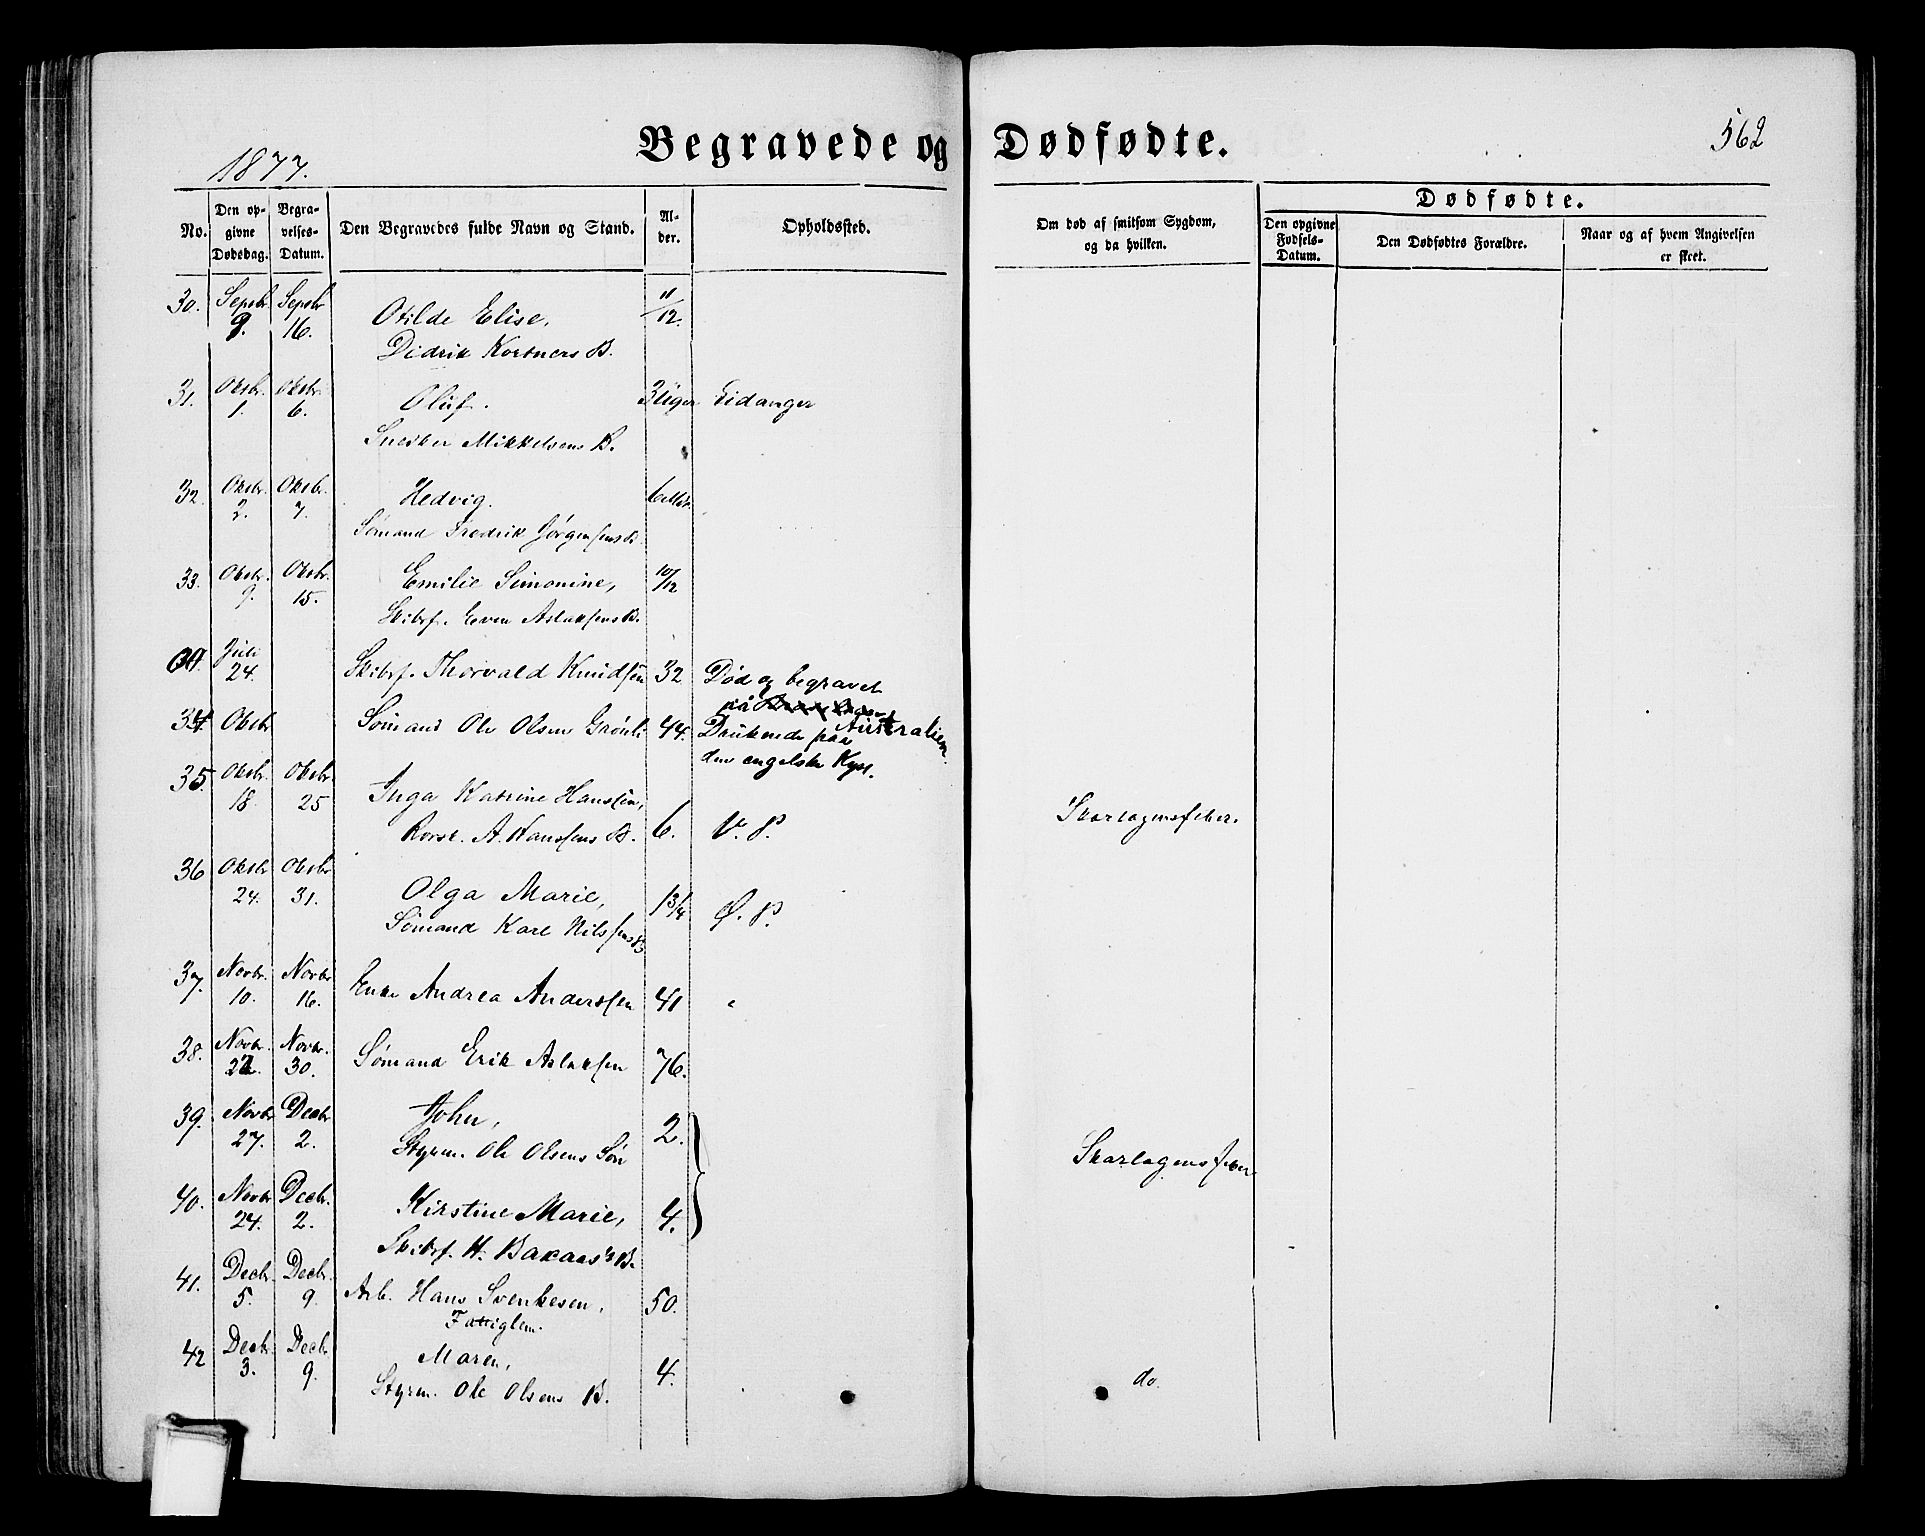 Begravede og Dødfødte.
562
1877.
No.
Den opgivne Dødsdag.
Begravelses-Datum.
Den Begravedes fulde Navn og Stand.
Alder.
Opholdssted.
Om død af smitsom Sygdom, og da hvilken.
Dødfødte.
Den opgivne Fødsels-Datum.
Den Dødfødtes Forældre.
Naar og af hvem Angivelsen er skeet.
30. Septbr 9. Septbr 16. Otilde Elise, 11/12.
Didrik Kortners B.
31. Oktbr. 1. Oktbr. 6. Oluf. 3 Uger Eidanger
Snedker Mikkelsens B.
32. Oktbr. 2. Oktbr. 7. Hedvig. 6 Mdr.
Sømand Fredrik Jørgensens B.
33. Oktbr. 9. Oktbr. 15. Emilie Simonine, 10/12
Skibsf. Even Aslaksens B.
Juli 24. Skibsf. Thorvald Knudsen 32 Død og begravet
på Australien
34. Oktbr Sømand Ole Olsen Grønli 44. Druknede paa
den engelske Kyst.
35. Oktbr. 18. Oktbr 25 Inga Katrine Hanssen,
A. Hanssens B. 6. V. P. Skarlagensfeber.
36 Oktbr 24. Oktbr 31. Olga Marie, 1 3/4 Ø. P.
Sømand Karl Nilssens B
37. Novbr. 10. Novbr 16. Enke Andrea Anderssen 41 "
38. Novbr. 22. Novbr. 30. Sømand Erik Aslaksen 76.
39. Novbr 27. Decbr 2. John, 2.
Styrm. Ole Olsens Søn Skarlagensfeber
40. Novbr 24. Decbr. 2. Kirstine Marie, 4.
Skibsf. H. Bakaas's B.
41. Decbr. 5. Decbr. 9. Arb. Hans Svenkesen, 50.
Fattiglem.
42 Decbr. 3. Decbr 9. Maren, 4. do.
Styrm. Ole Olsens B.